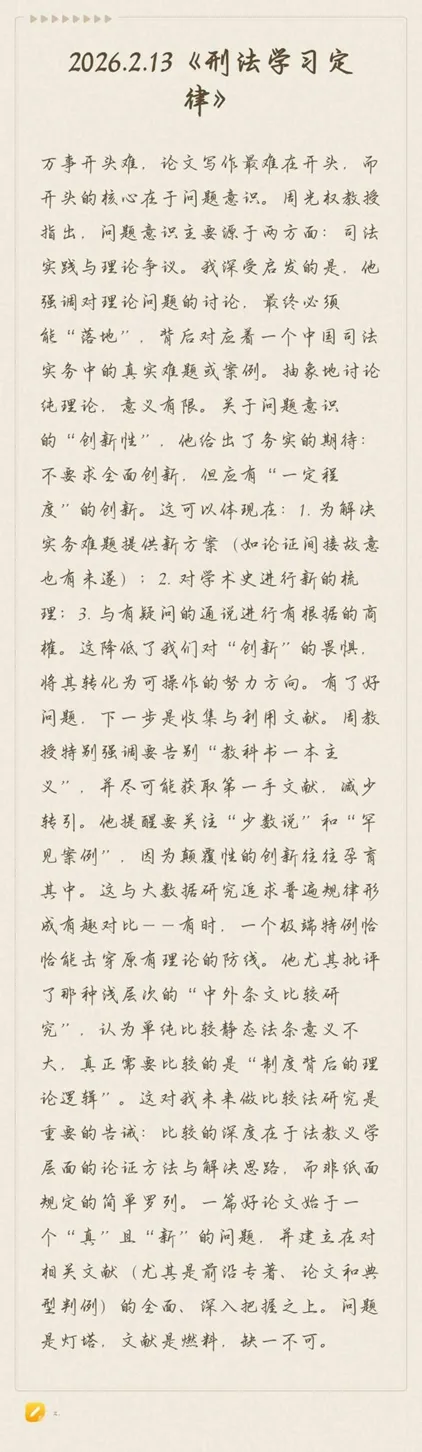 2026.2.13《刑法学习定
律》
万事开头难，论文写作最难在开头，而
开头的核心在于问题意识。周光权教授
指出，问题意识主要源于两方面：司法
实践与理论争议。我深受启发的是，他
强调对理论问题的讨论，最终必须
能“落地”，背后对应着一个中国司法
实务中的真实难题或案例。抽象地讨论
纯理论，意义有限。关于问题意识
的“创新性”，他给出了务实的期待：
不要求全面创新，但应有“一定程
度”的创新。这可以体现在：1. 为解决
实务难题提供新方案（如论证间接故意
也有未遂）；2. 对学术史进行新的梳
理；3. 与有疑问的通说进行有根据的商
榷。这降低了我们对“创新”的畏惧，
将其转化为可操作的努力方向。有了好
问题，下一步是收集与利用文献。周教
授特别强调要告别“教科书一本主
义”，并尽可能获取第一手文献，减少
转引。他提醒要关注“少数说”和“罕
见案例”，因为颠覆性的创新往往孕育
其中。这与大数据研究追求普遍规律形
成有趣对比——有时，一个极端特例恰
恰能击穿原有理论的防线。他尤其批评
了那种浅层次的“中外条文比较研
究”，认为单纯比较静态法条意义不
大，真正需要比较的是“制度背后的理
论逻辑”。这对我未来做比较法研究是
重要的告诫：比较的深度在于法教义学
层面的论证方法与解决思路，而非纸面
规定的简单罗列。一篇好论文始于一
个“真”且“新”的问题，并建立在对
相关文献（尤其是前沿专著、论文和典
型判例）的全面、深入把握之上。问题
是灯塔，文献是燃料，缺一不可。
z.